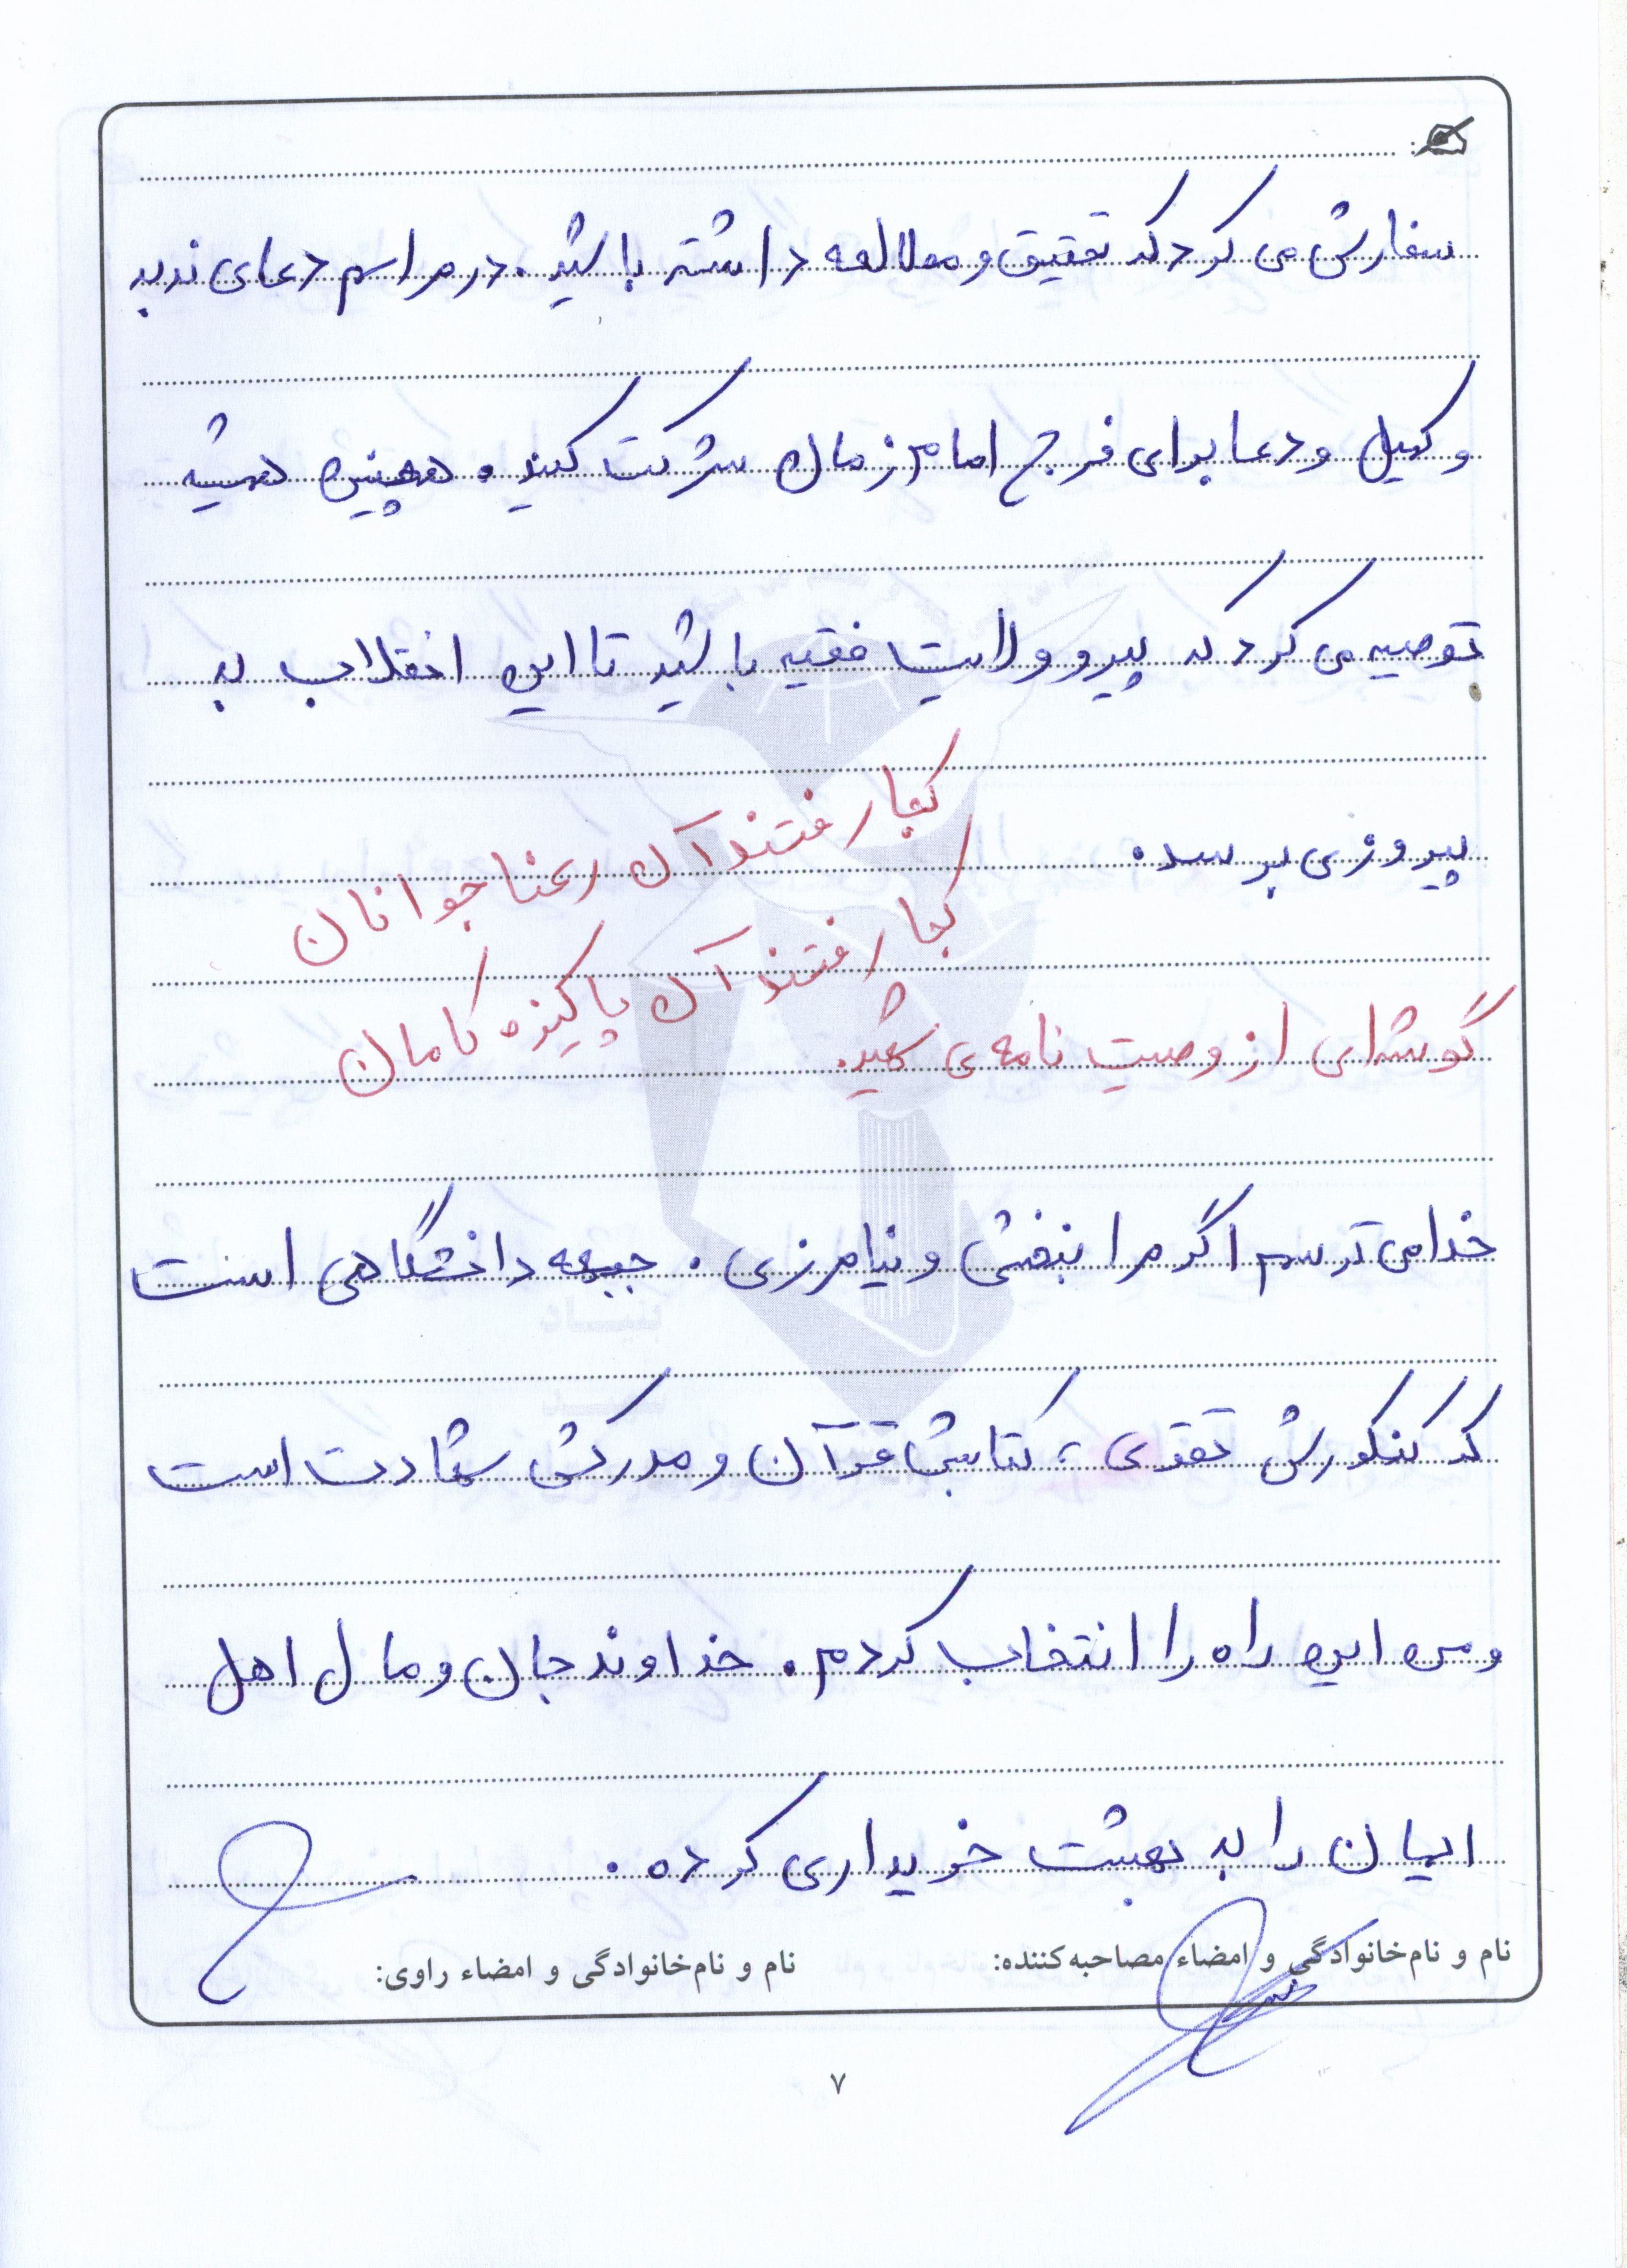 سفارش می کرد که تحقیق و مطالعه داشته باشید. در مراسم دعای ندبه
و کمیل و دعا برای فرج امام زمان شرکت کنید. همچنین همیشه
توصیه می کرد که پیرو ولایت فقیه باشید تا این انقلاب به
پیروزی برسد.
کجا رفتند آن رعنا جوانان
کجا رفتند آن پاکیزه کامان
گوشه‌ای از وصیت نامه ی شهید.
خدا می ترسم اگر مرا نبخشی و نیامرزی. جبهه دانشگاهی است
که کنکورش تقوی، کتابش قرآن و مدرکش شهادت است
و من این راه را انتخاب کردم. خداوند جان و مال اهل
ایمان را به بهشت خریداری کرده.
نام و نام‌خانوادگی و امضاء مصاحبه‌کننده:
نام و نام‌خانوادگی و امضاء راوی:
۷